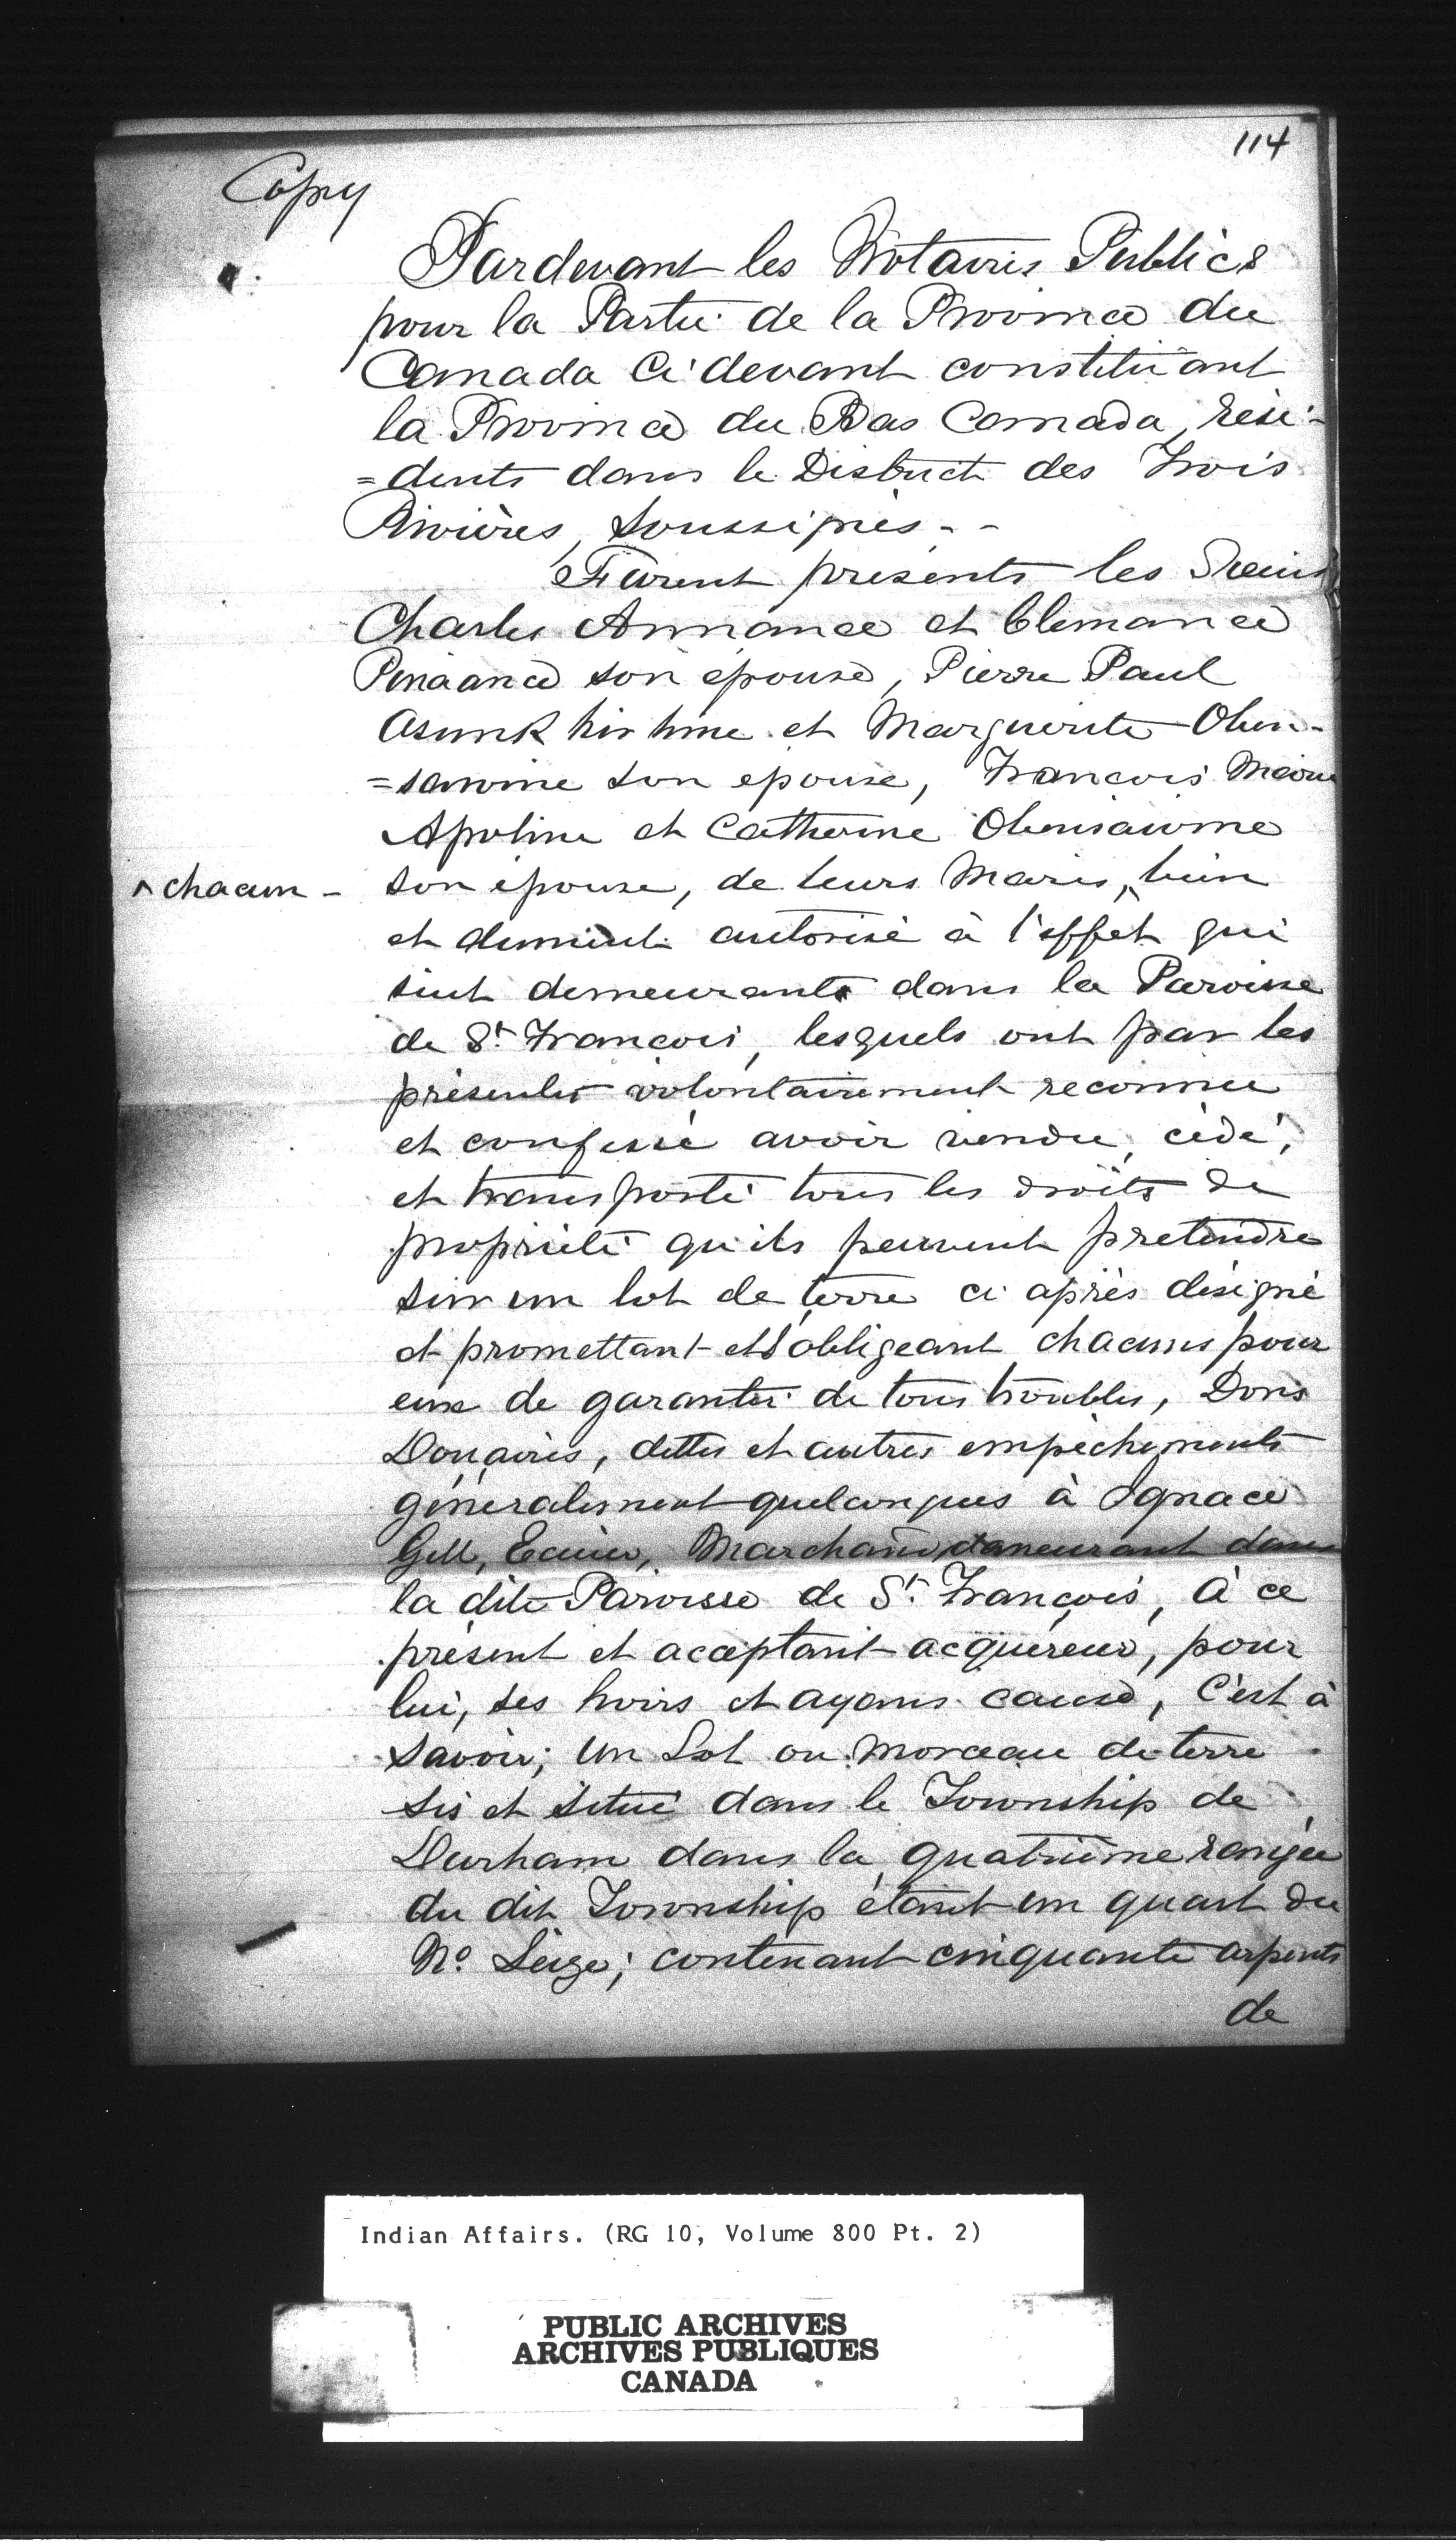 114
Copy
Pardevant les Notaires Publics
pour la Partie de la Province du
Canada Ci devant constituant
la Province du Bas Canada, rési-
=dents dans le District des Trois
Rivières, Soussignés - -
Furent présents les
Charles Annance et Clemance
son épouse, Pierre Paul
et Marguerite Oben-
=sawine son epouse, François Marie
Apoline et Catherine Obensawine
^ chacun - son épouse, de leurs Maris, ^ bien
et dument autorisé à l'effet qui
suit demeurants dans la Paroisse
de St. François, lesquels ont par les
présentes volontairement reconnu
et confessé avoir vendu, cédé,
et transporté tous les droits de
propriété qu'ils peuvent pretendre
sur un lot de terre ci après désigné
et promettant et s'obligeant chacuns pour
eux de garantir de tous troubles, Dons
Douaires, dettes et autres empèchements
généralement quelconques à Ignace
Gill, Ecuier, Marchand demeurant dans
la dite Paroisse de St. François, à ce
présent et acceptant acquéreur, pour
lui, ses hoirs et ayans cause, C'est à
savoir; Un Lot ou morceau de terre
sis et situé dans le Township de
Durham dans la quatrième rangée
du dit Township étant un quart du
No. Seize; contenant cinquante arpents
de
Indian Affairs. (RG 10, Volume 800 Pt. 2)
PUBLIC ARCHIVES
ARCHIVES PUBLIQUES
CANADA